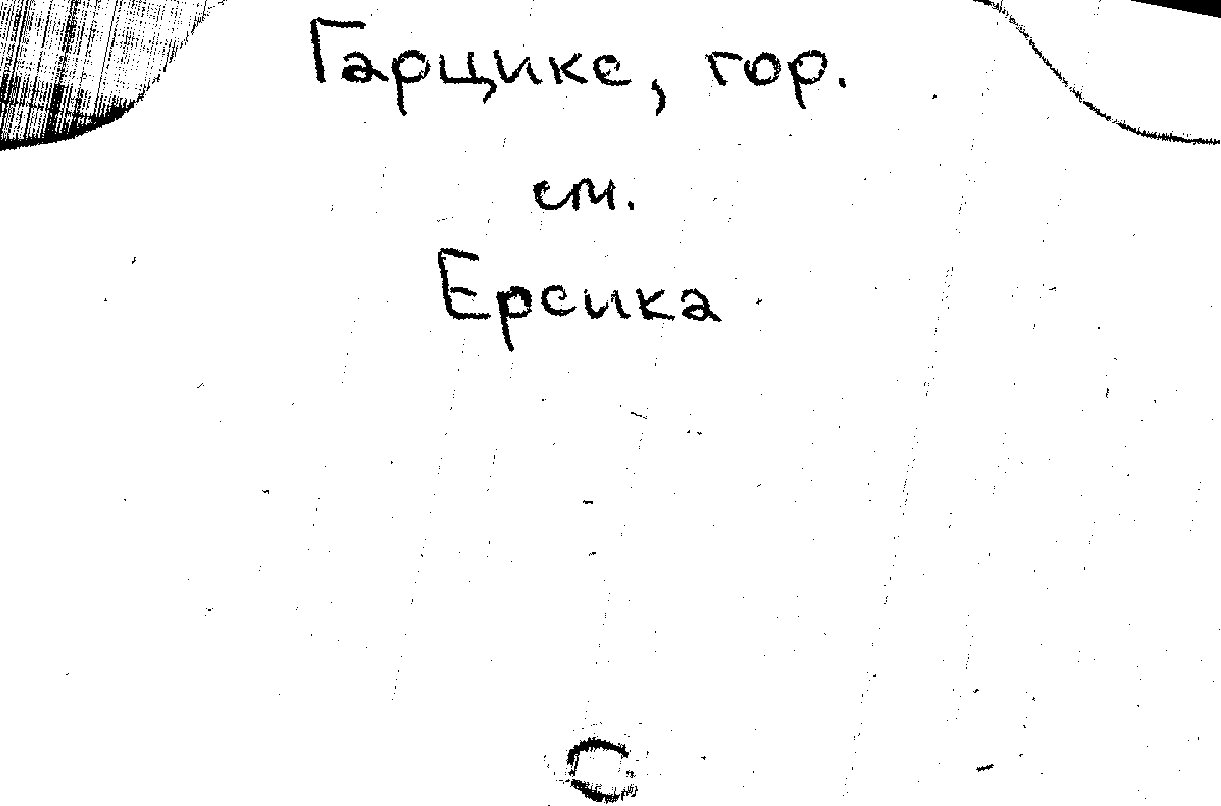 Гарцике, гор.
см.
Ерсика